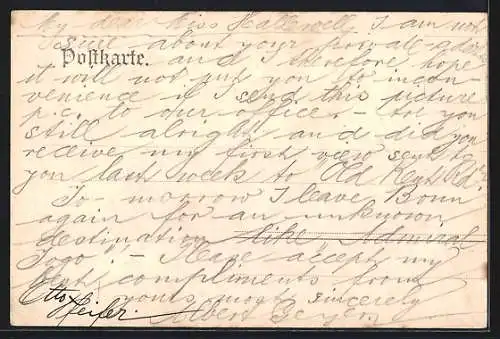 My dear Miss Hallewell, I am not
sure about your private address
Postkarte.
and I therefore hope
it will not put you to incon-
venience if I send this picture
p.c. to our office. - Are you
still alright and did you
receive my first view sent to
you last week to Old Kent Rd.
To-morrow I leave Bonn
again for an unknown
destination like Admiral
Togo. - Please accept my
best compliments from
yours most sincerely
Albert Geyer.
Otto
Pfeifer.